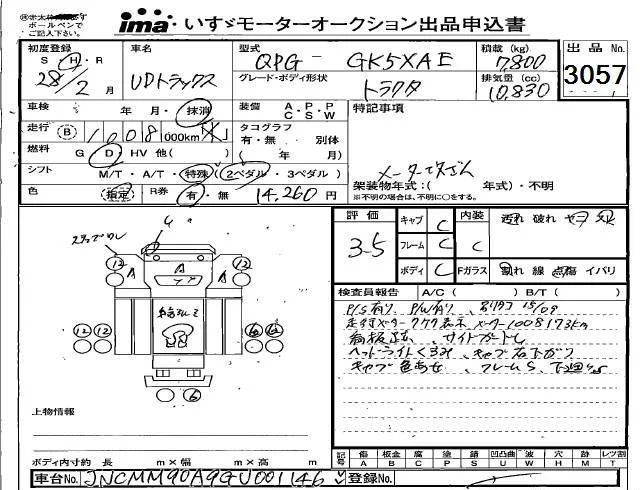 ima・いすゞモーターオークション出品申込書
ボールペンで
ご記入下さい。
初度登録 S H・R 28/2月
車名 UDトラックス
型式 QPG-GK5XAE
グレード・ボディ形状 トラクタ
積載 (kg) 7800
排気量 (cc) 10,830
出品No. 3057
車検 年 月・抹消
装備 A・P・P C・S・W
特記事項
走行 B 1008 000km
タコグラフ 有・無 別体 ( 年 月)
燃料 G D・HV 他( )
シフト M/T・A/T・特殊(2ペダル・3ペダル)
色 指定
R券 有・無 14,260円
架装物年式:( 年式)・不明
※不明の場合は、不明に○をする。
評価 3.5
キャブ C
フレーム C
ボディ C
内装 C
汚れ 破れ ヤニ 臭
Fガラス 割れ 線 点傷 イバリ
検査員報告 A/C( ) B/T( )
P/S有り P/W有り
走行メーター 表示 メーター1008173km
サイドガード
ヘッドライトくもり キャブ
キャブ色あせ フレームS
A A A
12 12
12 12 6 6
6
上物情報
ボディ内寸約 長 m×幅 m×高 m
記号 傷A 板金B 腐C 塗P 錆S 凹凸曲U 波W 穴H 跡M レツ割T
車台No. JNCMM90A9GU001146
登録No.